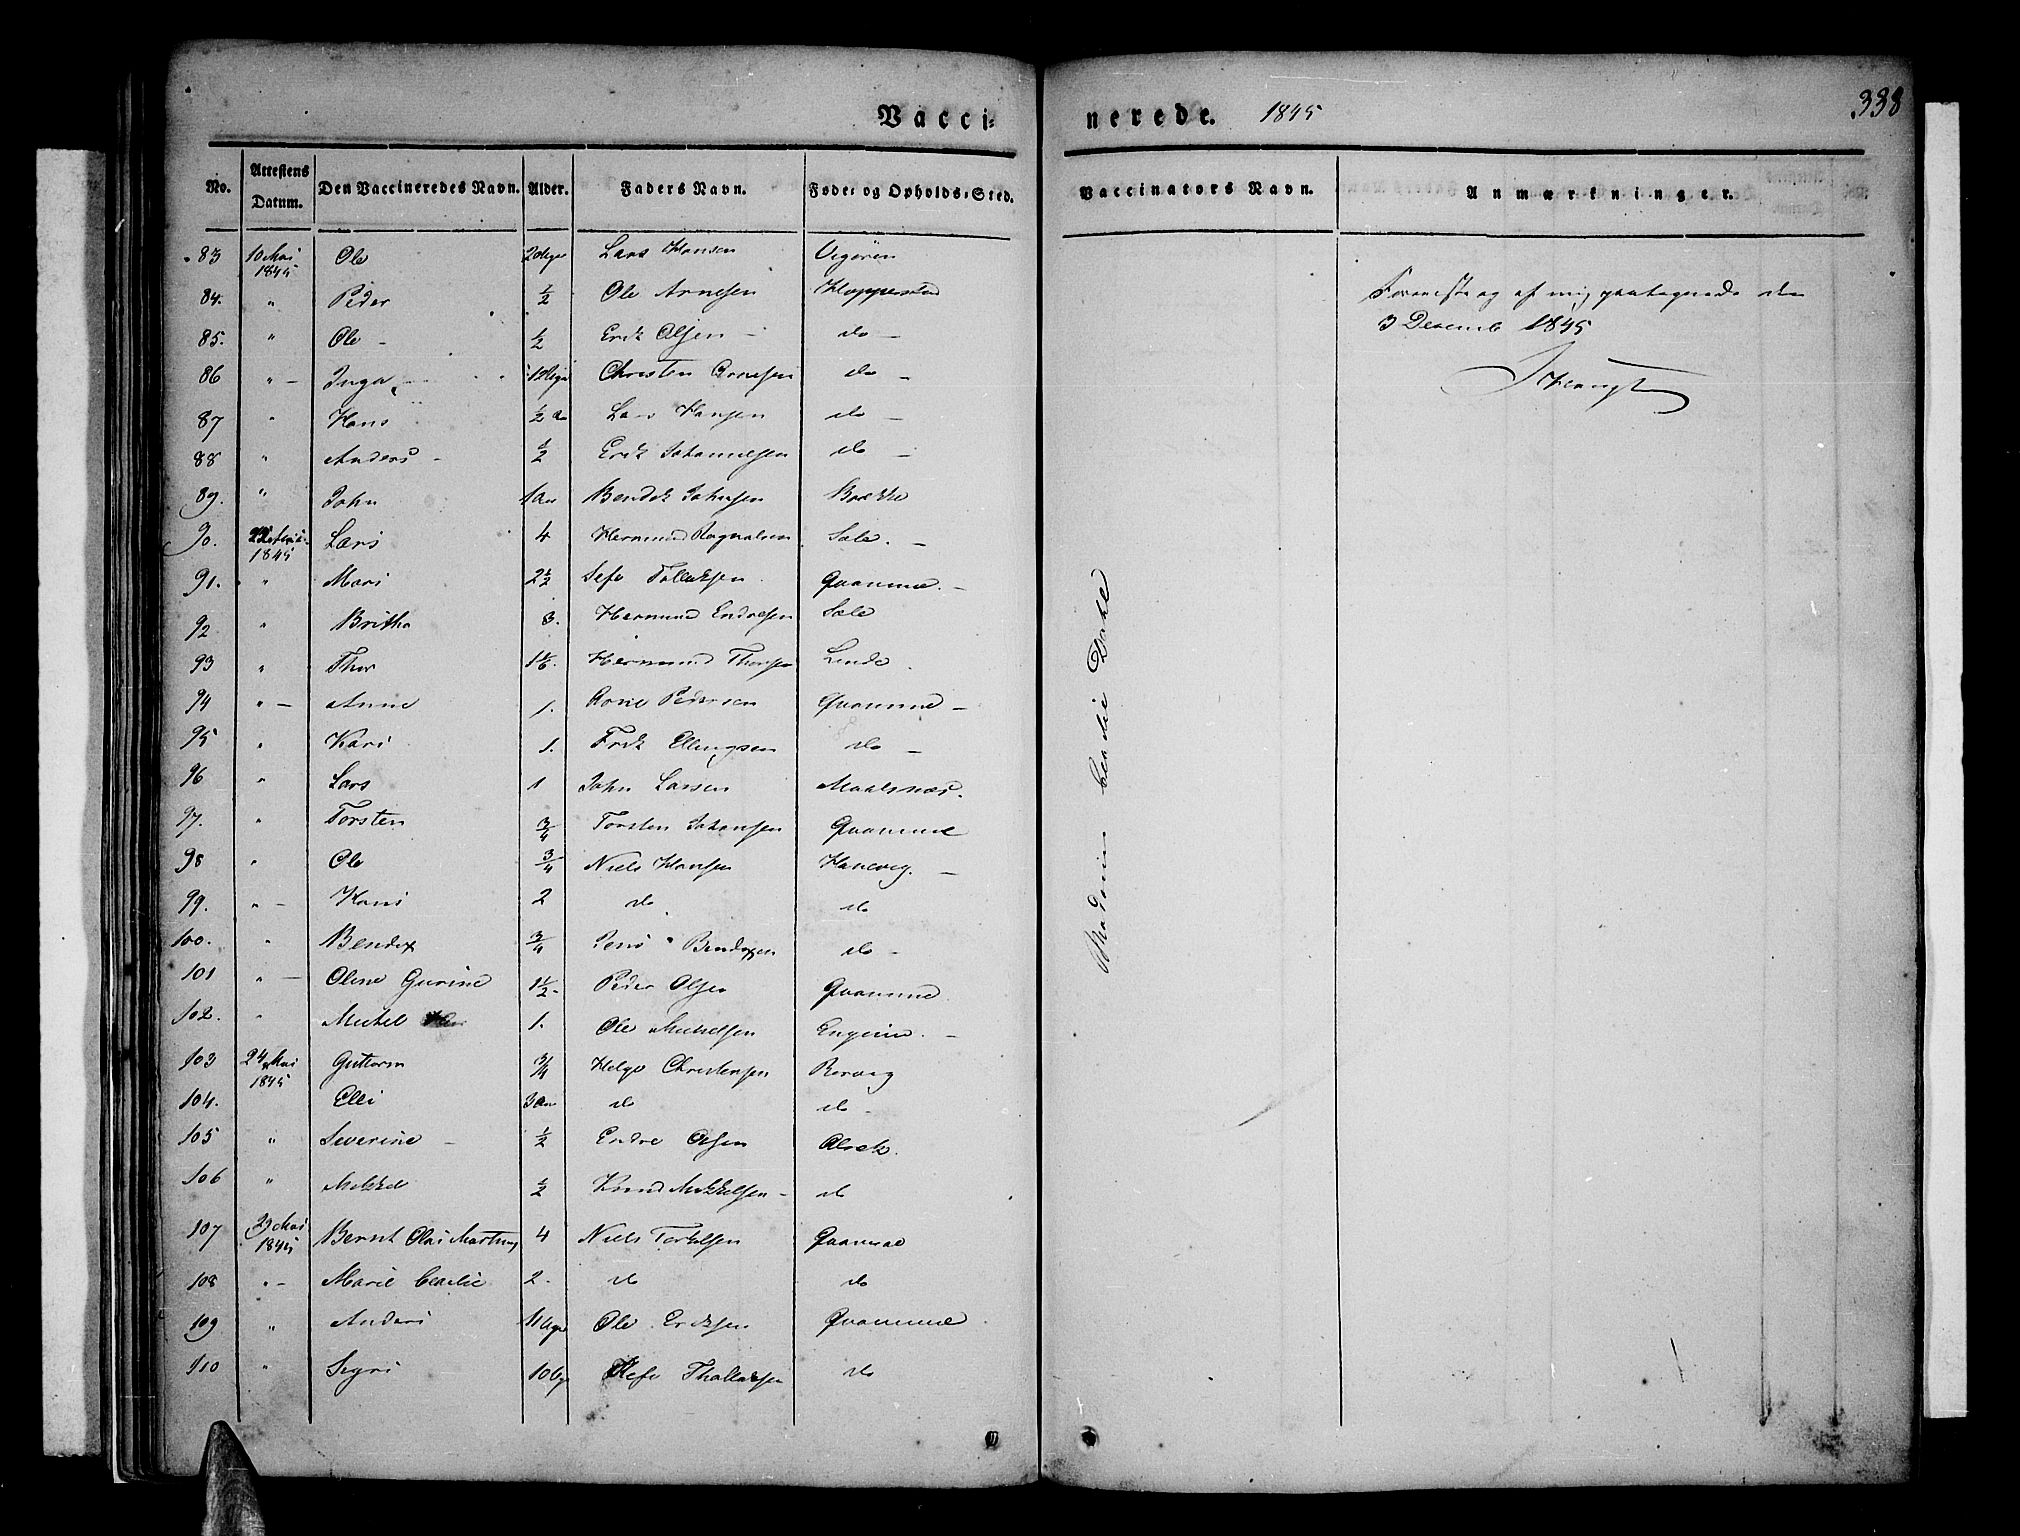 Vacci- nerede. 1845 338
No. Attestens Datum. Den Vaccineredes Navn. Alder. Faders Navn. Føde- og Opholds-Sted. Vaccinators Navn. Anmærkninger.
83 10 Mai 1845 Ole Lars Hansen
84. " Peder ½ Ole Arnesen Kloppestad
85. " Ole - ½ Erik Olsen - do -
86 " - Inga Christen Arnesen do -
87 " Hans ½ Lars Hansen do -
88 " Anders - ½ Erik Johannesen do -
89. " John 1 Bendik Johnsen Brekke
90. 1845 Lars 4 Hermund Ragnalsen Sæle. -
91. " Mari 2½ Sefe Tollaksen Qvamme. -
92 " Britha 3. Hermund Endresen Sæle
93 " Thor Hermund Thorsen Linde
94 " - Anne 1. Arne Pedersen Qvamme -
95 " Kari 1. Erik Ellingsen do -
96 " Lars 1 John Larsen Maalsnæs.
97. " Torsten ¾ Torsten Johansen Qvamme
98 " Ole ¾ Niels Hansen Hanevig. -
99. " - Hans 2 do do
100. " Bendix ¾ Bendixsen do -
101 " - Oline Gurine 1½- Peder Olsen Qvamme
102. " Mickel 1. Ole Mickelsen -
103 24 Mai 1845 Guttorm ¾ Helge Christensen
104. Elli 3 do do -
105 " Severine - ½ Endre Olsen
106 " Mikkel ½ Knud Mikkelsen - do
107 29 Mai 1845 Bernt Olai 4 Niels Terkelsen Qvamme
108 " - Marie 2. do do
109 " Anders Ole Eriksen Qvamme
110 " Sigri Thollaksen do
Madame Dahl
af mig
3 Decemb 1845